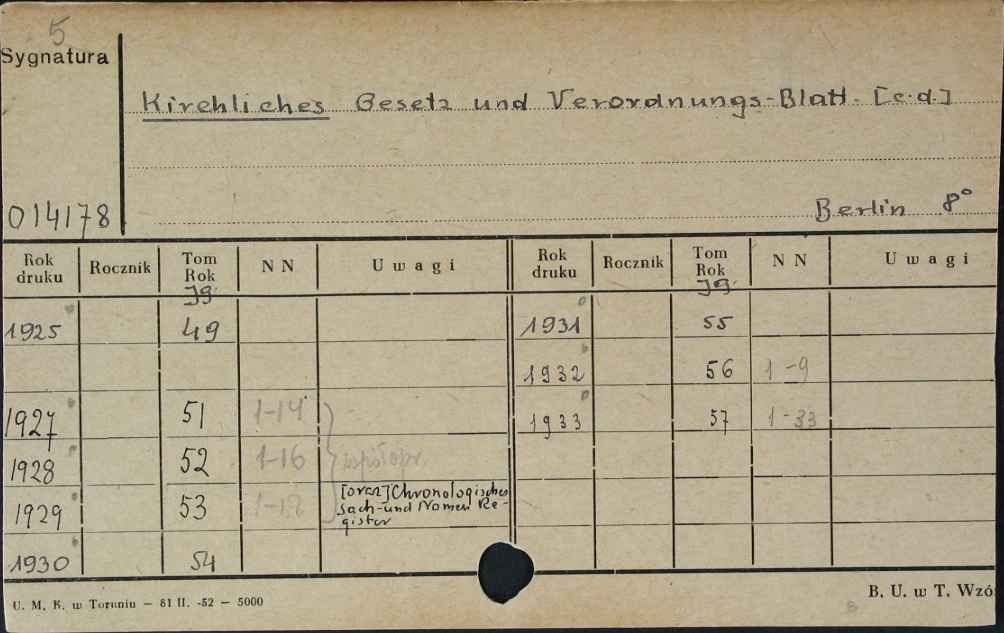 5
Sygnatura
Kirchliches Gesetz und Verordnungs-Blatt. [c.d.]
014178
Berlin 8°
Rok druku Rocznik Tom Rok NN Uwagi Rok druku Rocznik Tom Rok NN Uwagi
Jg. Jg.
1925 49 1931 55
1932 56 1-9
1927 51 1-14 1933 57 1-33
1928 52 1-16 współopr.
1929 53 [oraz] Chronologisches
Sach-und Namen Re-
gister
1930 54
U. M. K. w Toruniu — 81 II. -52 — 5000
B. U. w T. Wzó